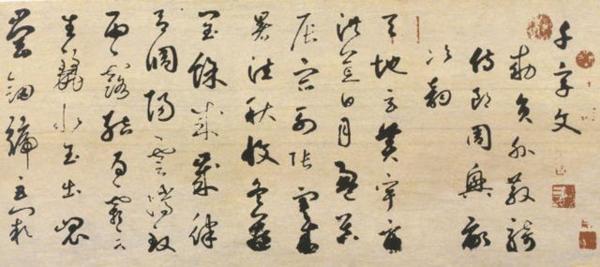 千字文
勅員外散騎
侍郎周興嗣
次韻
天地玄黃宇宙
洪荒日月盈昃
辰宿列張寒來
暑往秋收冬藏
閏餘成歲律
呂調陽雲騰致
雨露結為霜金
生麗水玉出崑
崗劍號巨闕